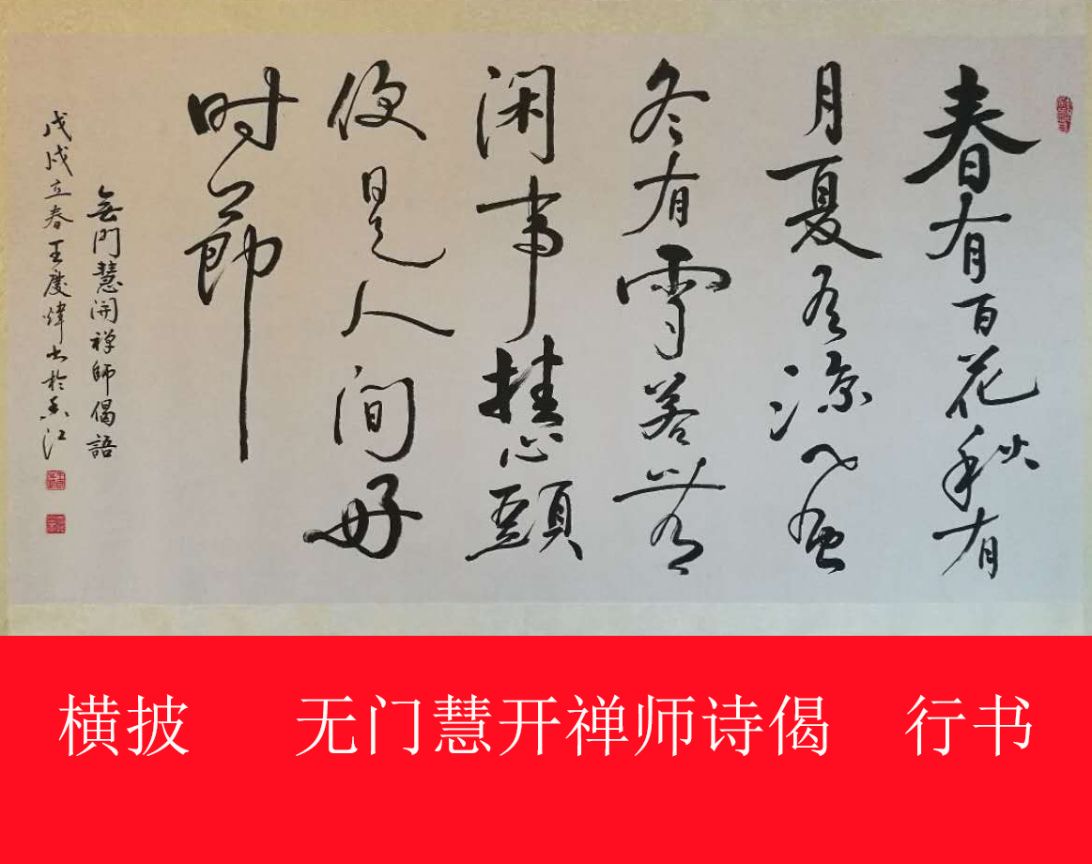 春有百花秋有
月夏有凉風
冬有雪若無
闲事挂心頭
便是人间好
时節
無門慧開禅師偈語
戊戌立春王慶煒书於香江
横披 无门慧开禅师诗偈 行书